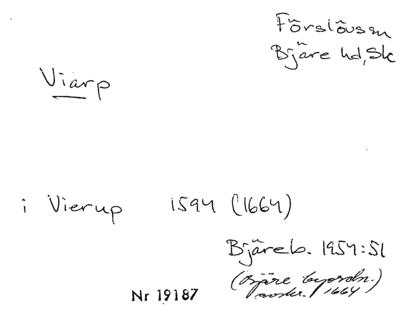 Förslövs sn
Bjäre hd, Sk
Viarp
i Vierup 1594 (1664)
Bjäreb. 1954:51
(Bjäre byordn.)
1664
Nr 19187